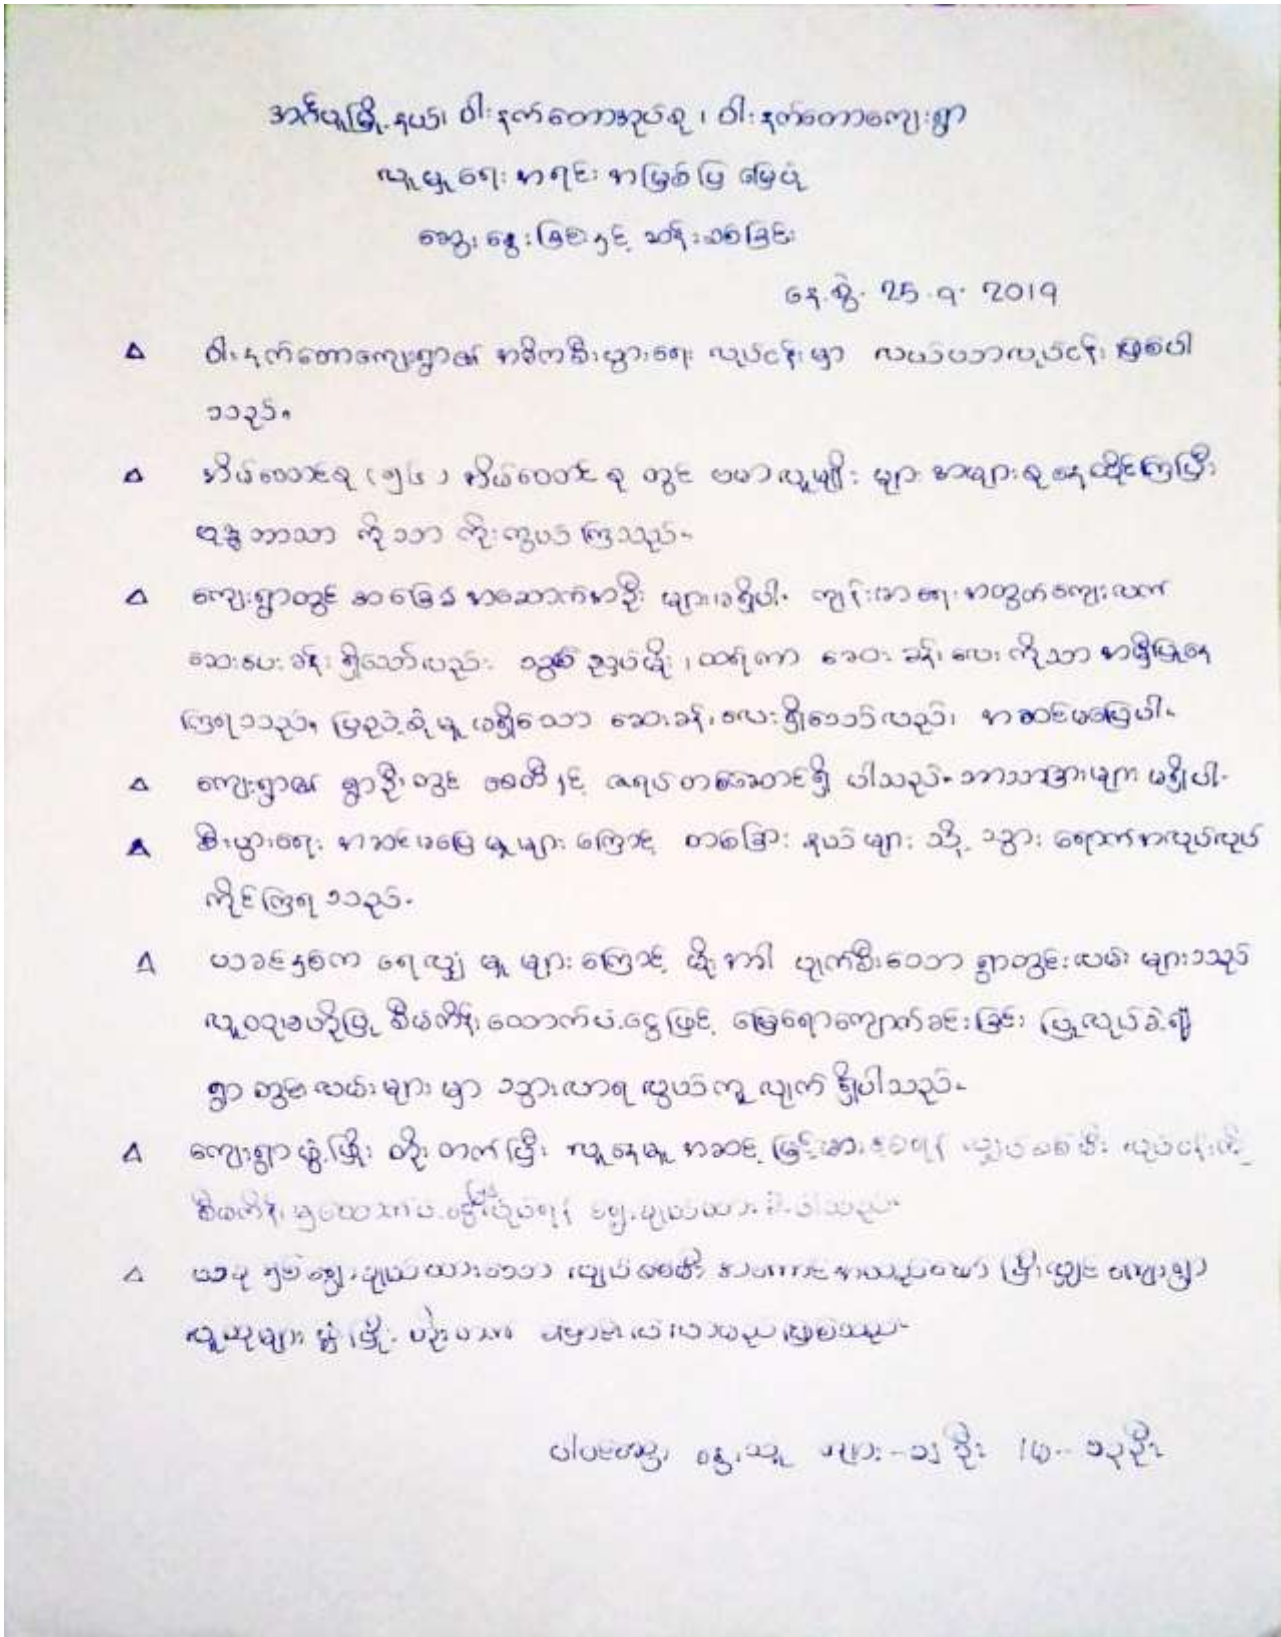 အုတ်ဖိုမြို့နယ်၊ ဝါးနက်တောအုပ်စု၊ ဝါးနက်တောကျေးရွာ
လူမှုရေး အရင်းအမြစ်ပြ မြေပုံ
ဆွေးနွေးခြင်းနှင့် ဆန်းစစ်ခြင်း
နေ့စွဲ- 25.9.2019
Δ ဝါးနက်တောကျေးရွာ၏ အဓိကစီးပွားရေး လုပ်ငန်းမှာ လယ်ယာလုပ်ငန်း ဖြစ်ပါ
သည်။
Δ အိမ်ထောင်စု အိမ်ထောင်စု တွင် ဗမာလူမျိုး များ အများစုနေထိုင်ကြပြီး
ဗုဒ္ဓဘာသာ ကိုသာ ကိုးကွယ်ကြသည်။
Δ ကျေးရွာတွင် အခြေခံ အဆောက်အဦး များမရှိပါ။ ကျန်းမာရေးအတွက်ကျေးလက်
ဆေးပေးခန်း ရှိသော်လည်း သွပ်မိုး၊ ထရံကာ ဆေးခန်းလေးကိုသာ အမှီပြုနေ
ကြရသည်။ ပြည့်စုံမှု မရှိသော ဆေးခန်းလေးရှိသော်လည်း အဆင်မပြေပါ။
Δ ကျေးရွာ၏ ရွာဦးတွင် စေတီနှင့် ဇရပ်တစ်ဆောင်ရှိ ပါသည်။ ဘာသာခြားများ မရှိပါ။
Δ စီးပွားရေး အဆင်မပြေမှုများကြောင့် တစ်ခြား နယ်များ သို့ သွားရောက်အလုပ်လုပ်
ကိုင်ကြရသည်။
Δ ယခင်နှစ်က ရေလျှံမှုများကြောင့် မိုးအခါ ပျက်စီးသော ရွာတွင်းလမ်းများသည်
လူထုဗဟိုပြု စီမံကိန်းထောက်ပံ့ငွေဖြင့် မြေရောကျောက်ခင်းခြင်း ပြုလုပ်ခဲ့၍
ရွာတွင်းလမ်းများမှာ သွားလာရ လွယ်ကူလျက် ရှိပါသည်။
Δ ကျေးရွာဖွံ့ဖြိုး တိုးတက်ပြီး လူနေမှုအဆင့် မြင့်မားစေရန် လျှပ်စစ်မီး လုပ်ငန်းကို
စီမံကိန်းမှထောက်ပံ့ငွေဖြင့်လုပ်ရန် ရွေးချယ်ထားရှိပါသည်။
Δ ယခု နှစ်ရွေးချယ်ထားသော လျှပ်စစ်မီး အကောင်အထည်ဖော်ပြီးလျှင် ကျေးရွာ
လူထုများ ဖွံ့ဖြိုး လာမည်ဖြစ်သည်။
ပါဝင်ဆွေးနွေးသူ များ- ဦး မ- ဦး